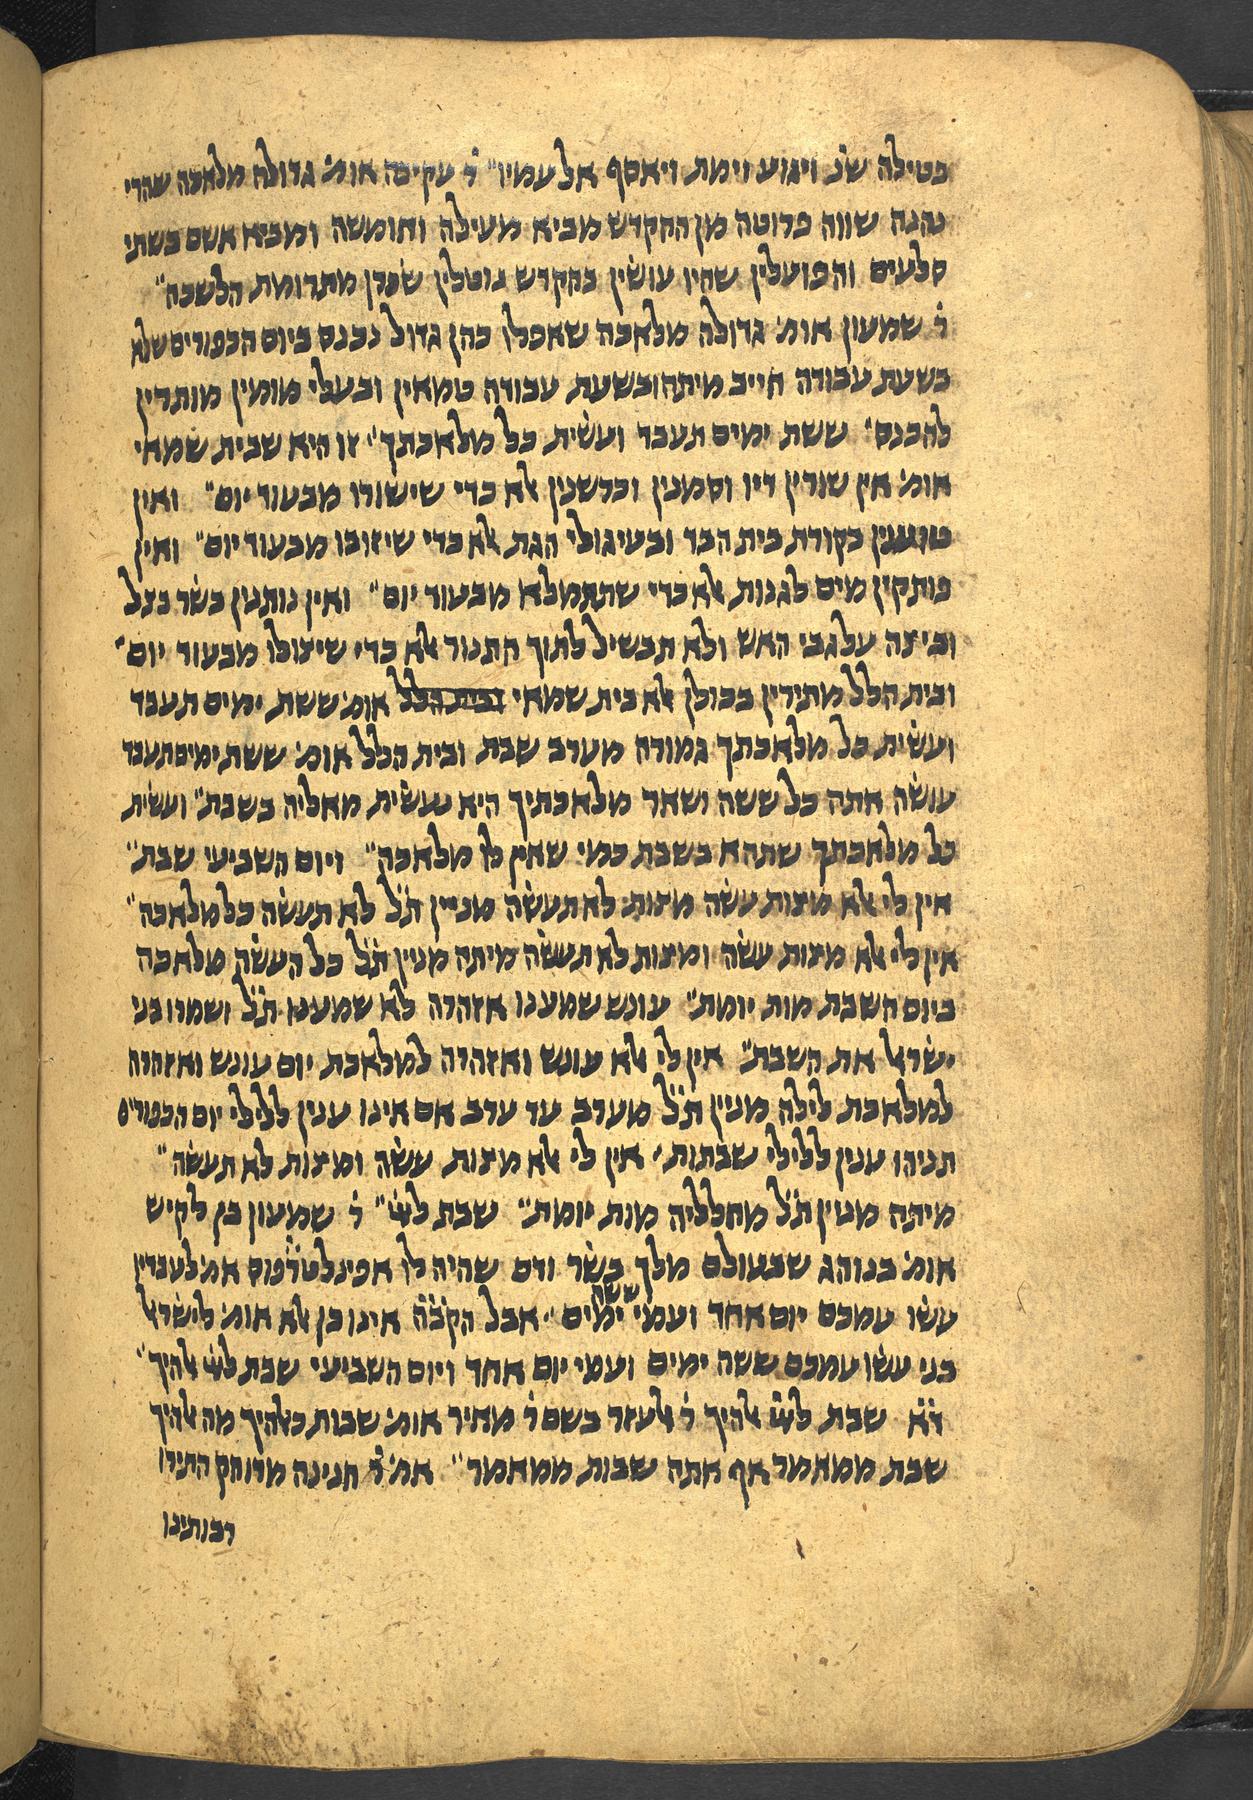 בטילה שנ׳ ויגוע וימת ויאסף אל עמיו״ ר׳ עקיבה אומ׳ גדולה מלאכה שהרי
נהנה שווה פרוטה מן ההקדש מביא מעילה וחומשה ומביא אשם בשתי
סלעים והפועלין שהיו עושין בהקדש נוטלין שכרן מתרומת הלשכה״
ר׳ שמעון אומ׳ גדולה מלאכה שאפלו כהן גדול נכנס ביום הכפורים שלא
בשעת עבודה חייב מיתה ובשעת עבודה טמאין ובעלי מומין מותרין
להכנס׳ ששת ימים תעבד ועשית כל מלאכתך״ זו היא שבית שמאי
אומ׳ אין שורין דיו וסמנין וכרשנין אלא כדי שישורו מבעוד יום״ ואין
טוענין בקורת בית הבד ובעיגולי הגת אלא כדי שיזובו מבעוד יום״ ואין
פותקין מים לגנות אלא כדי שתתמלא מבעוד יום״ ואין נותנין בשר בצל
וביצה על גבי האש ולא תבשיל לתוך התנור אלא כדי שיצולו מבעוד יום״
ובית הלל מתירין בכולן אלא בית שמאי ובית הלל אומ׳ ששת ימים תעבד
ועשית כל מלאכתך גמורה מערב שבת ובית הלל אומ׳ ששת ימים תעבד
עושה אתה כל ששה ושאר מלאכתיך היא נעשית מאליה בשבת״ ועשית
כל מלאכתך שתהא בשבת כמי שאין לו מלאכה״ ויום השביעי שבת״
אין לי אלא מצות עשה מצות לא תעשה מניין ת״ל לא תעשה כל מלאכה״
אין לי אלא מצות עשה ומצות לא תעשה מיתה מנין ת״ל כל העשה מלאכה
ביום השבת מות יומת״ עונש שמענו אזהרה לא שמענו ת״ל ושמרו בני
ישראל את השבת״ אין לי אלא עונש ואזהרה למלאכת יום עונש ואזהרה
למלאכת לילה מנין ת״ל מערב עד ערב אם אינו ענין ללילי יום הכפורים
תניהו ענין ללילי שבתות׳ אין לי אלא מצות עשה ומצות לא תעשה״
מיתה מנין ת״ל מחלליה מות יומת״ שבת לש׳״ ר׳ שמעון בן לקיש
אומ׳ בנוהג שבעולם מלך בשר ודם שהיה לו אפיטלטרפוס אמ׳ לעבדיו
עשו עמכם יום אחד ועמי ששה ימים״ אבל הק׳ב׳ה׳ אינו כן אלא אומ׳ לישראל
בני עשו עמכם ששה ימים ועמי יום אחד ויום השביעי שבת לש׳ אלהיך״
ד״א שבת לש׳ אלהיך ר׳ אלעזר בשם ר׳ מאיר אומ׳ שבות כאלהיך מה אלהיך
שבת ממאמר אף אתה שבות ממאמר״ אמ׳ ר׳ חנינה מדוחק התירו
רבותינו